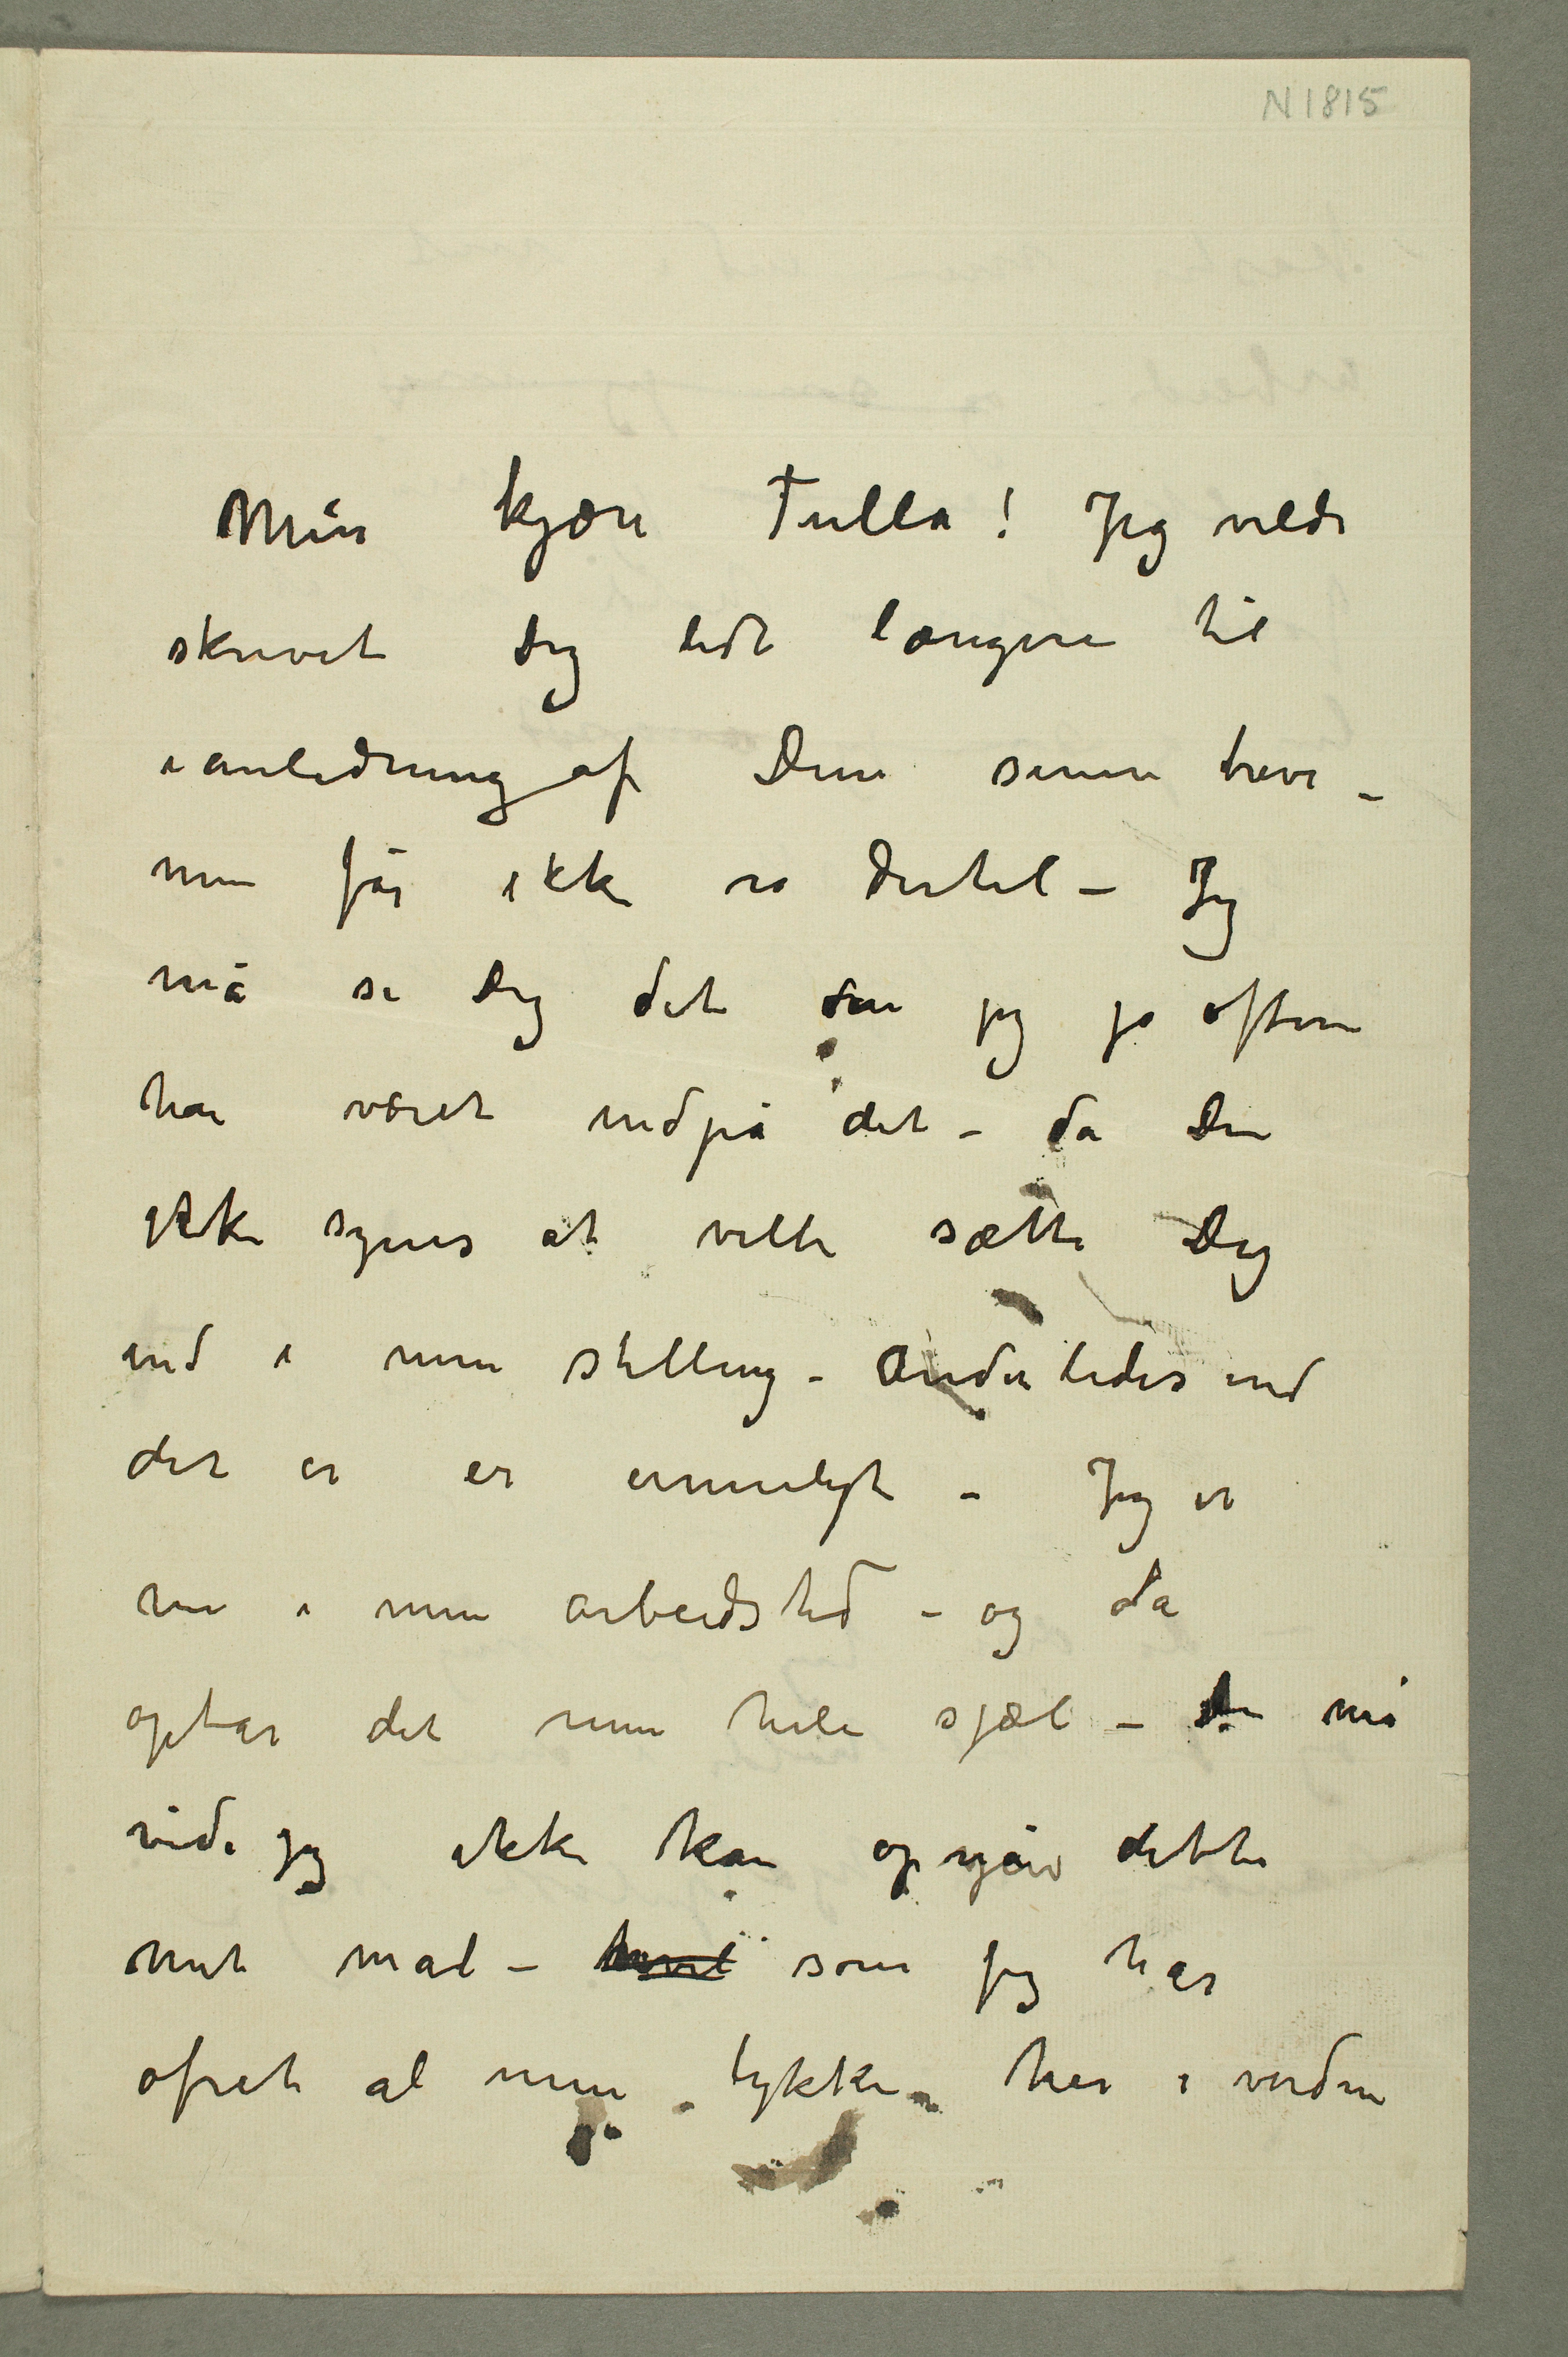 N 1815
Min kjære Tulla! Jeg vilde
skrevet Dig lidt længere til
i anledning af Dine senere breve –
men får ikke ro dertil – Jeg
må si Dig det som jeg jo oftere
har været indpå det – da Du
ikke synes at ville sætte Dig
ind i min stilling – anderledes end
det er er umuligt – Jeg er
nu i min arbeidstid – og da
optar det min hele sjæl – Du må
vide jeg ikke kan opgive dette
mit mål – hvil som jeg har
ofret al min lykke her i verden